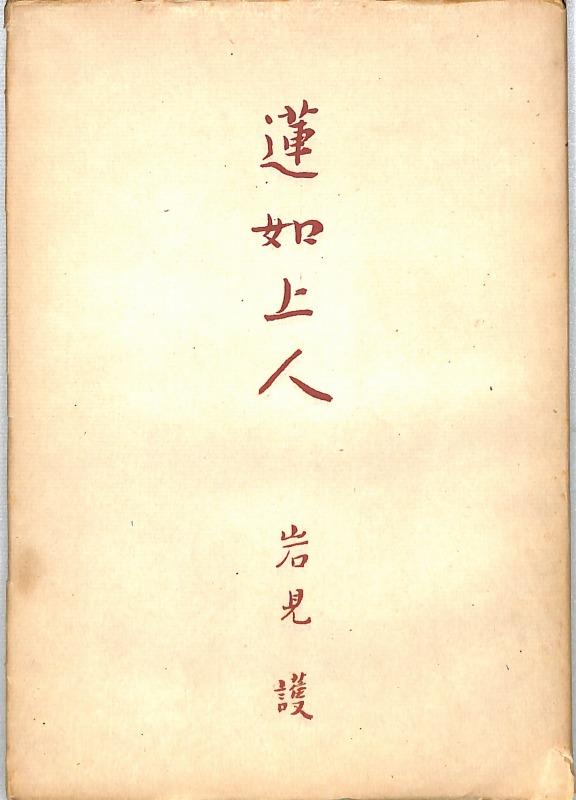 蓮如上人
岩見 護